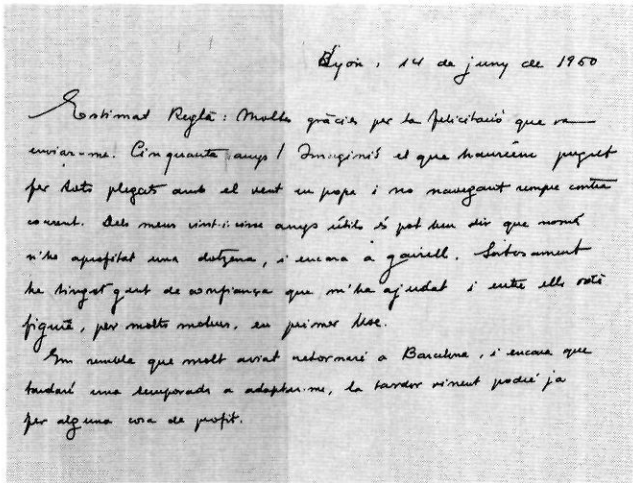 Lyon, 14 de juny de 1960
Estimat Reglà: Moltes gràcies per la felicitació que va
enviar-me. Cinquanta anys! Imagini's el que hauríem pogut
fer tots plegats amb el vent en popa i no navegant sempre contra
corrent. Dels meus vint-i-cinc anys útils es pot ben dir que només
n'he aprofitat una dotzena, i encara a gairell. Sortosament
he tingut gent de confiança que m'ha ajudat i entre ells vostè
figura, per molts motius, en primer lloc.
Em sembla que molt aviat retornaré a Barcelona, i encara que
tardaré una temporada a adaptar-me, la tardor vinent podré ja
fer alguna cosa de profit.